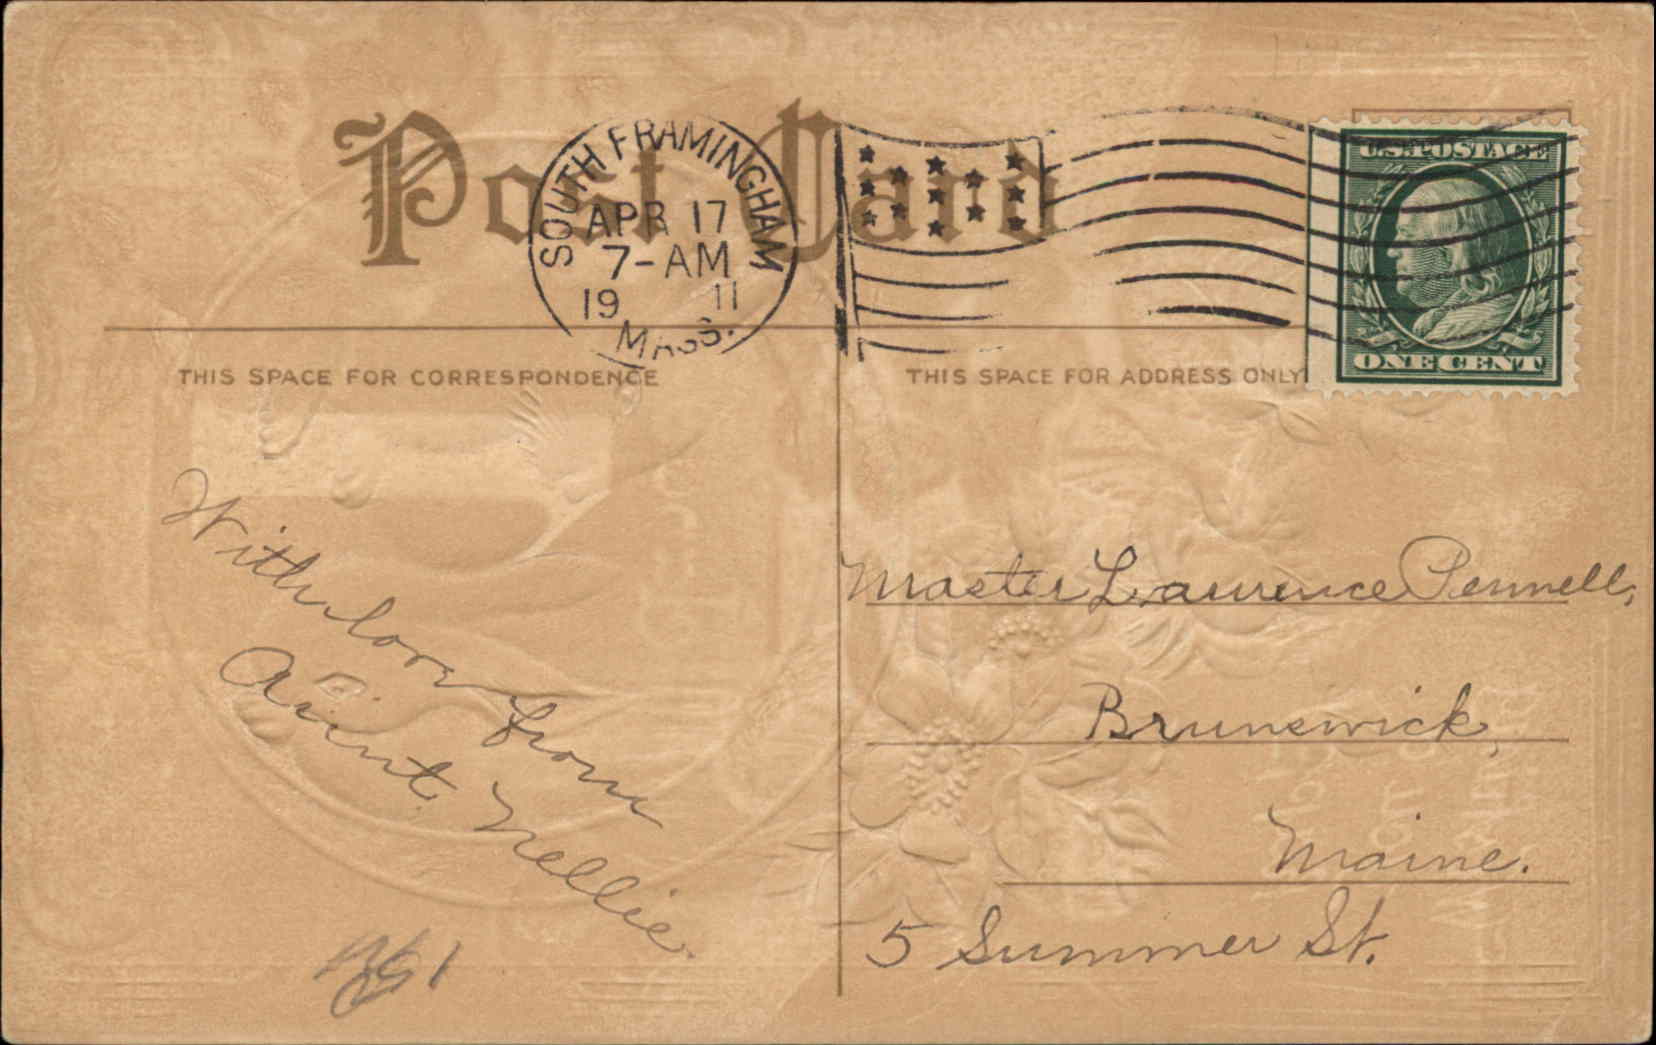 Post Card
SOUTH FRAMINGHAM
APR 17
7-AM
19 11
MASS.
U.S. POSTAGE
ONE CENT
THIS SPACE FOR CORRESPONDENCE
THIS SPACE FOR ADDRESS ONLY
With love from
Aunt Nellie.
Master Lawrence Pennell,
Brunswick,
Maine.
5 Summer St.